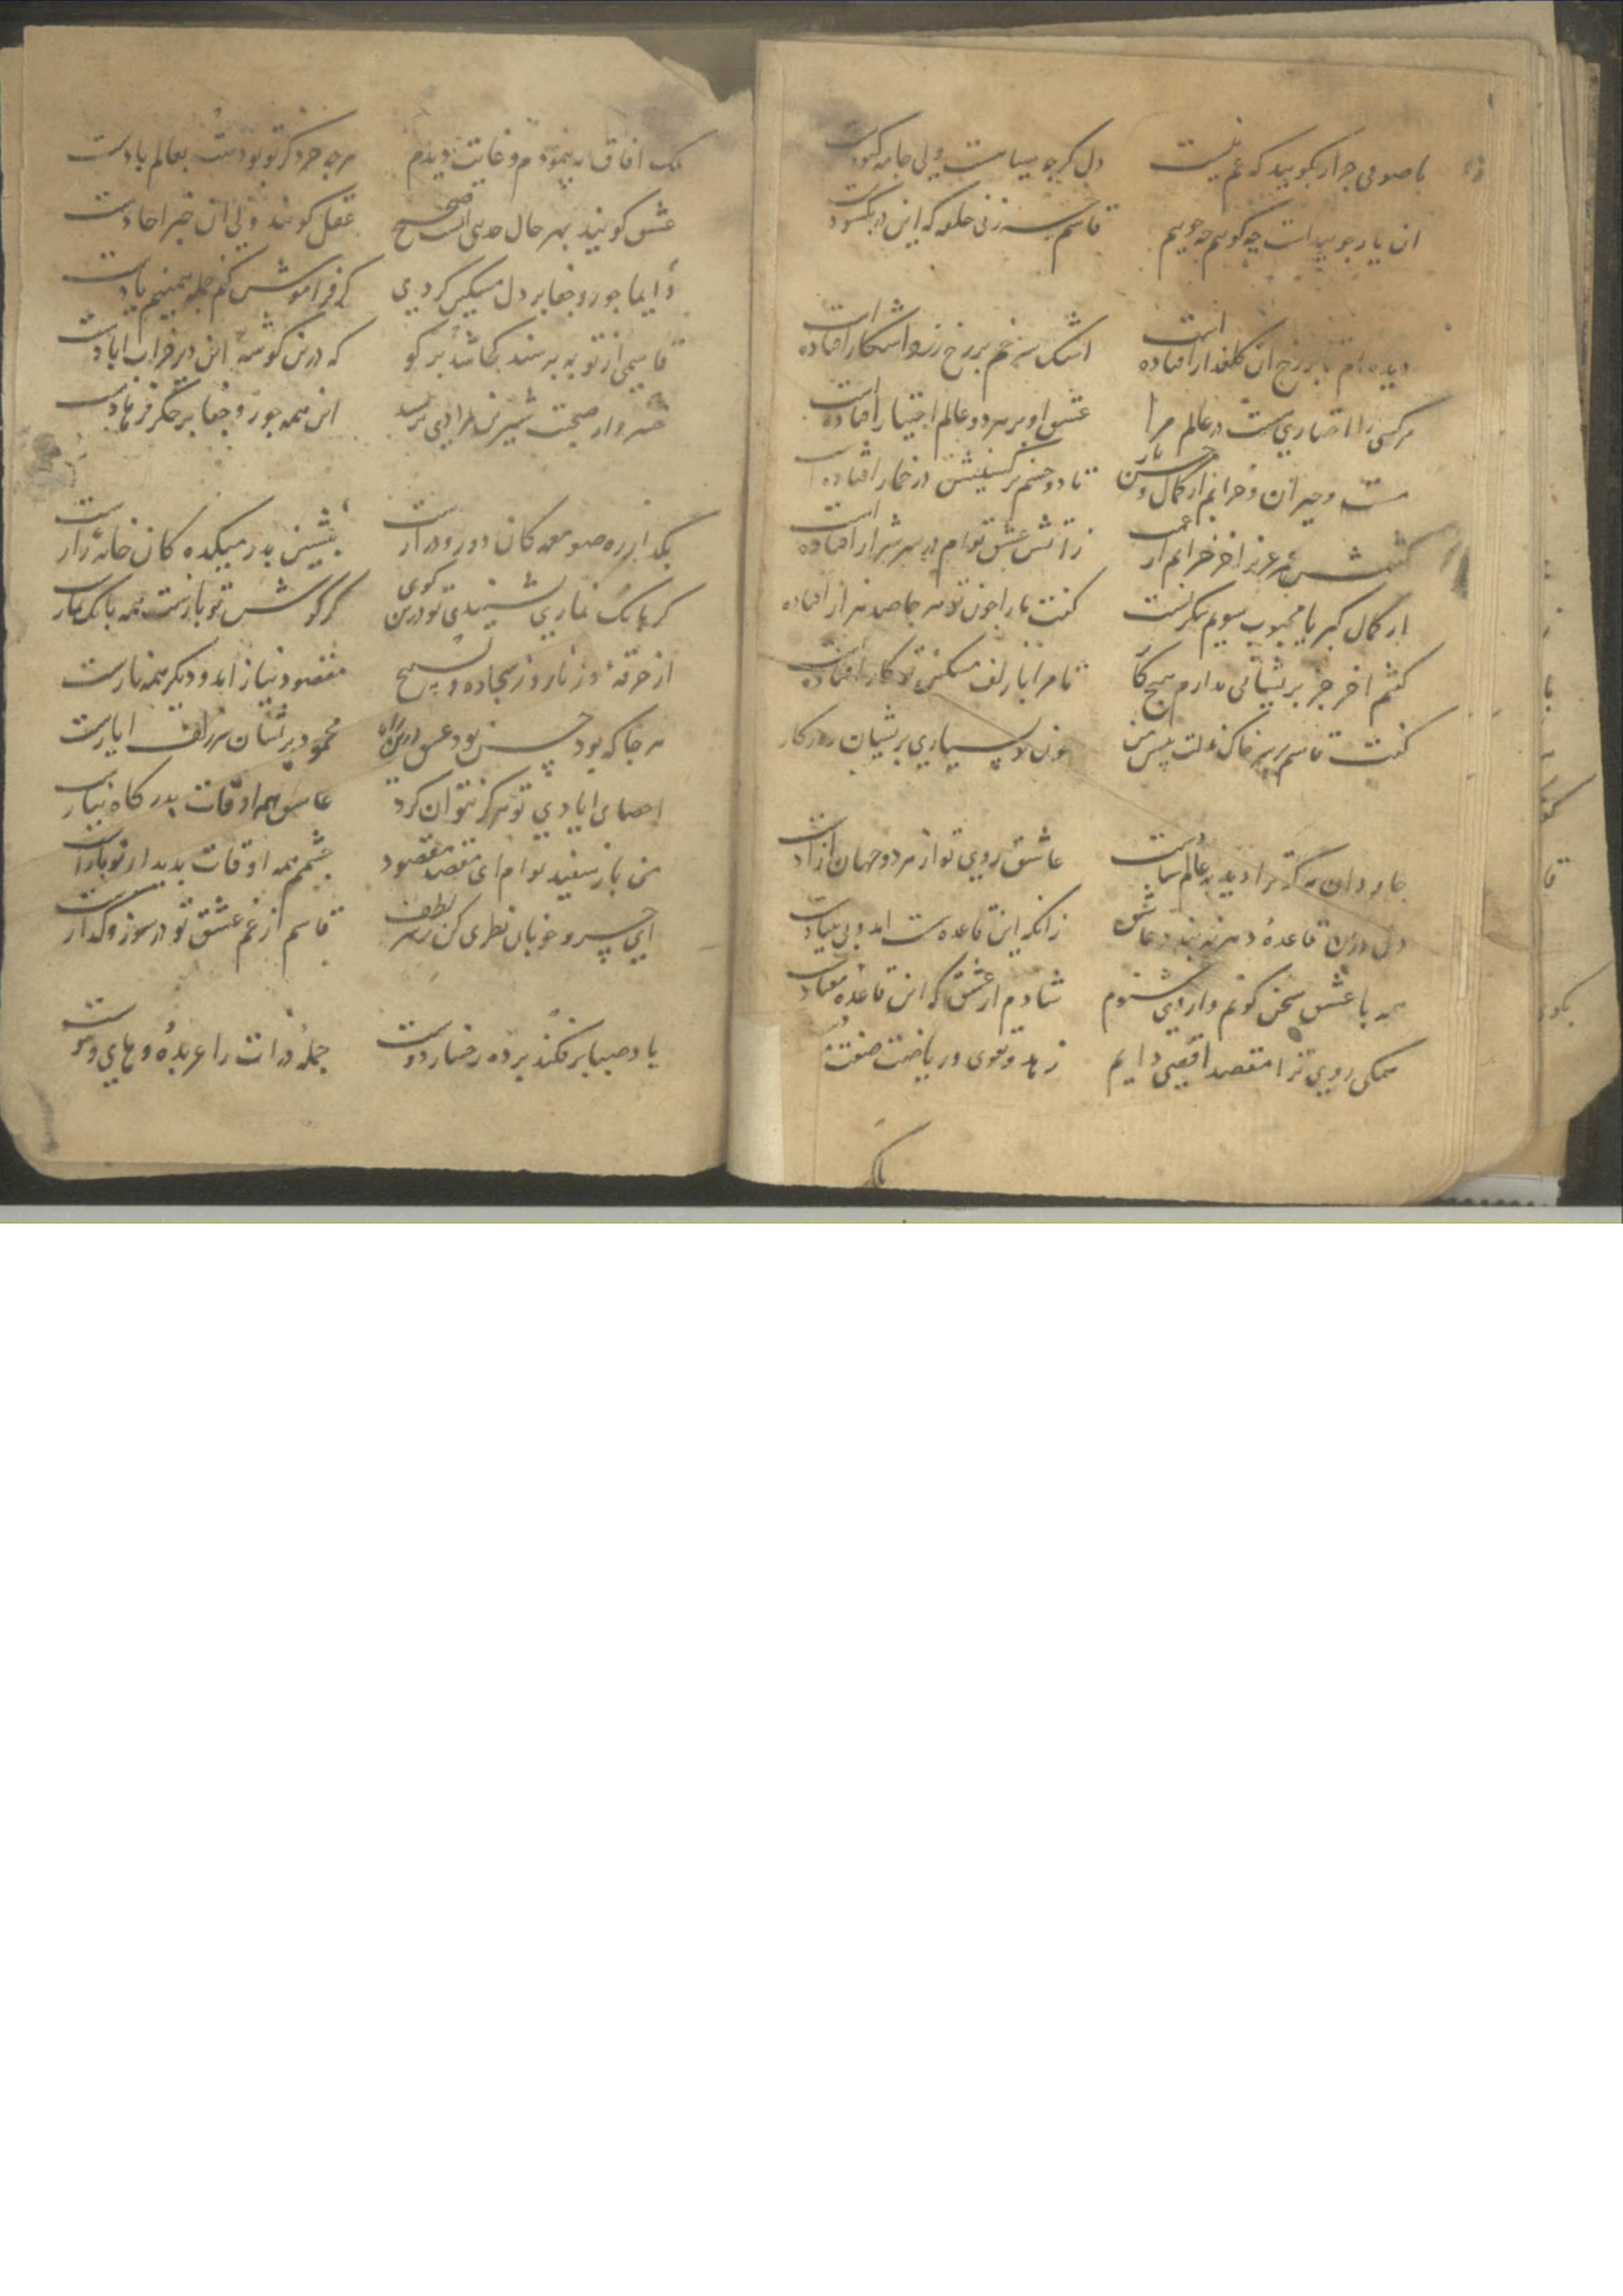 با صوفی جرار بگویید که غم نیست دل گرچه سیاست ولی جامه کبودست
ان یار چو پیداست چه گویم چه جویم قاسم زنی حلقه که این در بکشود
دیده ام تا بر رخ ان گلعذار افتاده است اشک سرخم بر رخ زرد اشکار افتاده است
هرکسی را اختیاری هست در عالم مرا عشق او بر هر دو عالم اختیار افتاده است
مست و حیران و خرابم از کمال حسن یار تا دو چشم نرگسینش در خمار افتاده
گفتمش عمر عزیز اخر خرابم از غمت ز اتش عشق توام در سر شرار افتاده است
از کمال کبریا محبوب سویم بنگریست گفت ما را چون تو هر جا صد هزار افتاده
گفتم اخر جز پریشانی ندارم هیچ کار تا مرا با زلف مسکین تو کار افتاده است
گفت قاسم بر سر خاک مذلت پیش من چون تو بسیاری پریشان روزگار
جاودان هرکه ترا دید بعالم شادست عاشق روی تو از هر دو جهان ازادست
دل درین قاعده دهر نه بندد عاشق زانکه این قاعده سست امد و بی بنیادست
همه با عشق سخن گویم و از وی شنوم شادم از عشق که این قاعده معتادست
همگی روی ترا مقصد اقصی دایم زهد و تقوی و ریاضت صفت
ملک افاق به پیمودم و غایت دیدم هرچه جز ذکر تو بودست بعالم بادست
عشق گویند بهر حال حدیثیست صحیح عقل گویند ولی ان خبر احادست
دایما جور و جفا بر دل مسکین کردی گر فراموش کنم جمله همینم یادست
قاسمی از تو به پرسند کجا شد برگو که درین گوشه این دیر خراب ابادست
خسرو از صحبت شیرین بمرادی برسد این همه جور و جفا بر جگر فرهادست
بگذر از ره صومعه کان دور و درازست بنشین بدر میکده کان خانه رازست
گر بانک نمازی نشنیدی تو درین کوی گر گوش تو بازست همه بانک نمازست
از خرقه و زنار و ز سجاده و تسبیح مقصود نیاز امد و دیگر همه نازست
هرجا که بود حسن بود عشق درین راه محمود پریشان سر زلف ایازست
احصای ایادی تو هرگز نتوان کرد عاشق همه اوقات بدرگاه نیازست
من باز سفید توام ای مقصد مقصود چشمم همه اوقات بدیدار تو بازست
ای خسرو خوبان نظری کن ز سر لطف قاسم ز غم عشق تو در سوز و گدازست
باد صبا بر فکند پرده رخسار دوست جمله ذرات را عربده و های و هوست
ملک